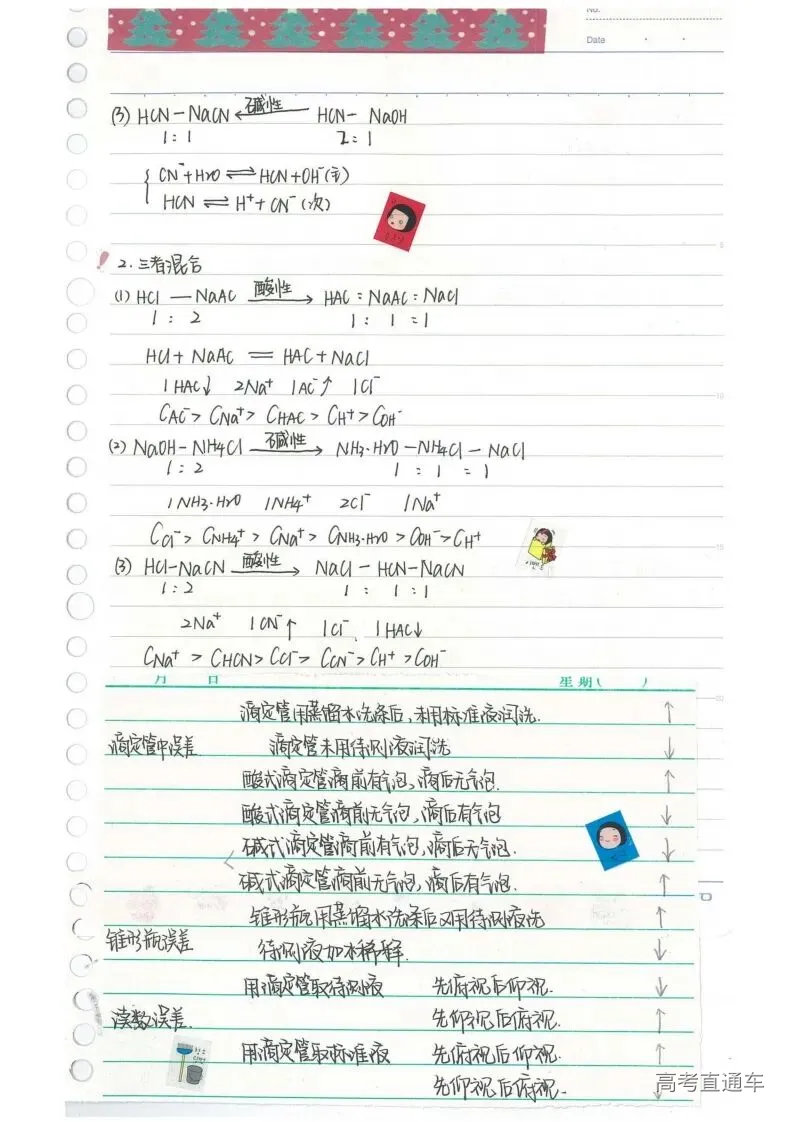 No.
Date
(3) HCN-NaCN ←碱性 HCN- NaOH
1:1 2:1
CN⁻+H₂O ⇌ HCN+OH⁻(主)
HCN ⇌ H⁺+CN⁻(次)
! 2.三者混合
(1) HCl — NaAC 酸性→ HAC:NaAC:NaCl
1:2 1:1:1
HCl+NaAC = HAC+NaCl
1HAC↓ 2Na⁺ 1AC⁻↑ 1Cl⁻
CAC⁻> CNa⁺> CHAC> CH⁺> COH⁻
(2) NaOH-NH4Cl 碱性→ NH3·H2O-NH4Cl-NaCl
1:2 1:1:1
1NH3·H2O 1NH4⁺ 2Cl⁻ 1Na⁺
CCl⁻> CNH4⁺> CNa⁺> CNH3·H2O> COH⁻> CH⁺
(3) HCl-NaCN 酸性→ NaCl-HCN-NaCN
1:2 1:1:1
2Na⁺ 1CN⁻↑ 1Cl⁻ 1HAC↓
CNa⁺ > CHCN> CCl⁻> CCN⁻> CH⁺> COH⁻
月 日 星期( )
滴定管用蒸馏水洗涤后,未用标准液润洗. ↑
滴定管中误差 滴定管未用待测液润洗 ↓
酸式滴定管滴前有气泡,滴后无气泡. ↑
酸式滴定管滴前无气泡,滴后有气泡 ↓
碱式滴定管滴前有气泡,滴后无气泡. ↓
碱式滴定管滴前无气泡,滴后有气泡. ↑
锥形瓶用蒸馏水洗涤后又用待测液洗 ↑
锥形瓶误差 待测液加水稀释. ↓
用滴定管取待测液 先俯视后仰视. ↓
读数误差. 先仰视后俯视. ↑
用滴定管取标准液 先俯视后仰视. ↑
先仰视后俯视. ↓
高考直通车